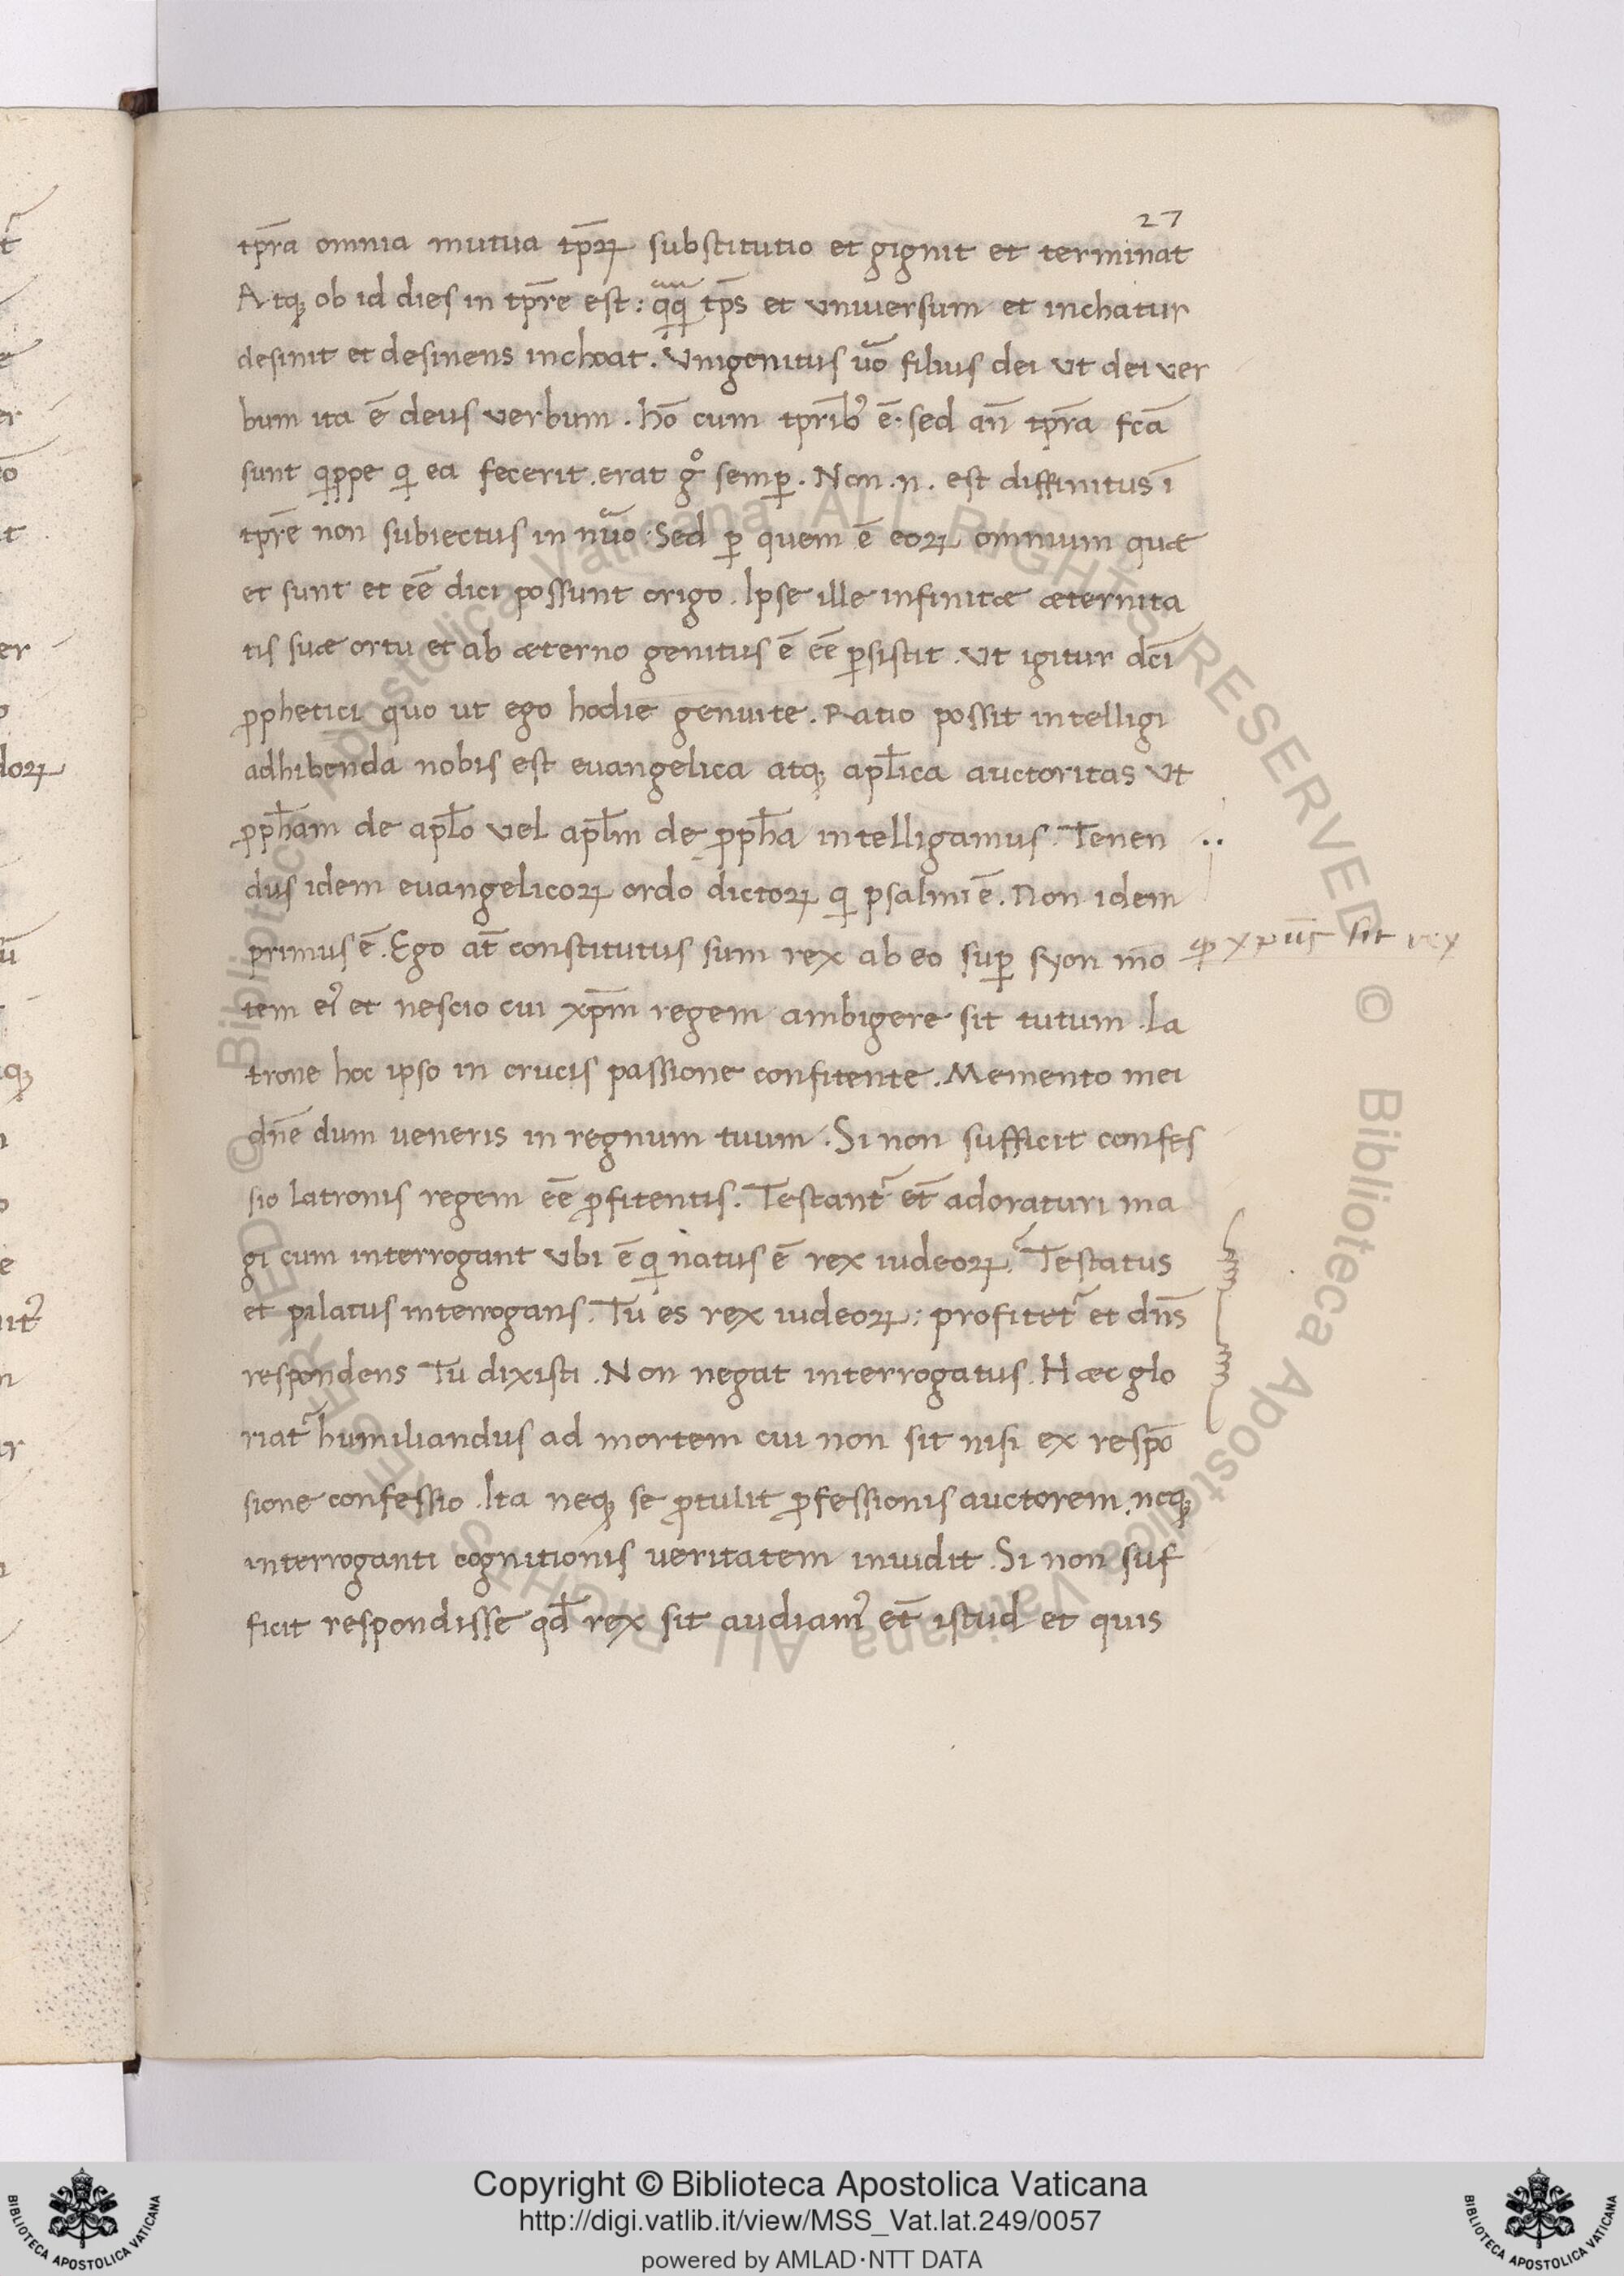 27
tp̄ra omnia mutua tp̄oꝝ substitutio et gignit et terminat
Atqꝫ ob id dies in tp̄re est: tp̄s et vniuersum et inchatur
desinit et desinens inchoat. Vnigenitus uo᷃ filius dei vt dei ver
bum ita ē deus verbum. hō cum tp̄ribꝰ ē. sed an̄ tp̄ra fcā
sunt qippe qi ea fecerit. erat gͦ semꝑ. Non .n. est diffinitus ī
tp̄re non subiectus in nuo᷃. Sed ꝑ quem ē eoꝝ omnium quæ
et sunt et eē dici possunt origo. Ipse ille infinitæ æternita
tis suæ ortu et ab æterno genitus ē eē ꝑsistit. Vt igitur dcī
ꝓphetici quo ut ego hodie genuite. Ratio possit intelligi
adhibenda nobis est euangelica atqꝫ apl̄ica auctoritas vt
ꝓph̄am de apl̄o vel apl̄m de ꝓph̄a intelligamus. Tenen
dus idem euangelicoꝝ ordo dictoꝝ qi psalmi ē. Non idem
primus ē. Ego at̄ constitutus sum rex ab eo suꝑ syon mō
tem eiꝰ et nescio cui xp̄m regem ambigere sit tutum. La
trone hoc ipso in crucis passione confitente. Memento mei
dn̄e dum veneris in regnum tuum. Si non sufficit confes
sio latronis regem eē ꝓfitentis. Testant᷑ et̄ adoraturi ma
gi cum interrogant vbi ē qi natus ē rex iudeoꝝ? Testatus
et pilatus interrogans. Tu es rex iudeoꝝ: profitet᷑ et dn̄s
respondens Tu dixisti. Non negat interrogatus. Hæc glo
riat᷑ humiliandus ad mortem cui non sit nisi ex respō
sione confessio. Ita neqꝫ se ꝓtulit ꝓfessionis auctorem, neqꝫ
interroganti cognitionis veritatem inuidit. Si non suf
ficit respondisse qd̄ rex sit audiamꝰ et̄ istud et quis
xp̄us sit rex
Copyright © Biblioteca Apostolica Vaticana
http://digi.vatlib.it/view/MSS_Vat.lat.249/0057
powered by AMLAD·NTT DATA
BIBLIOTECA APOSTOLICA VATICANA
BIBLIOTECA APOSTOLICA VATICANA